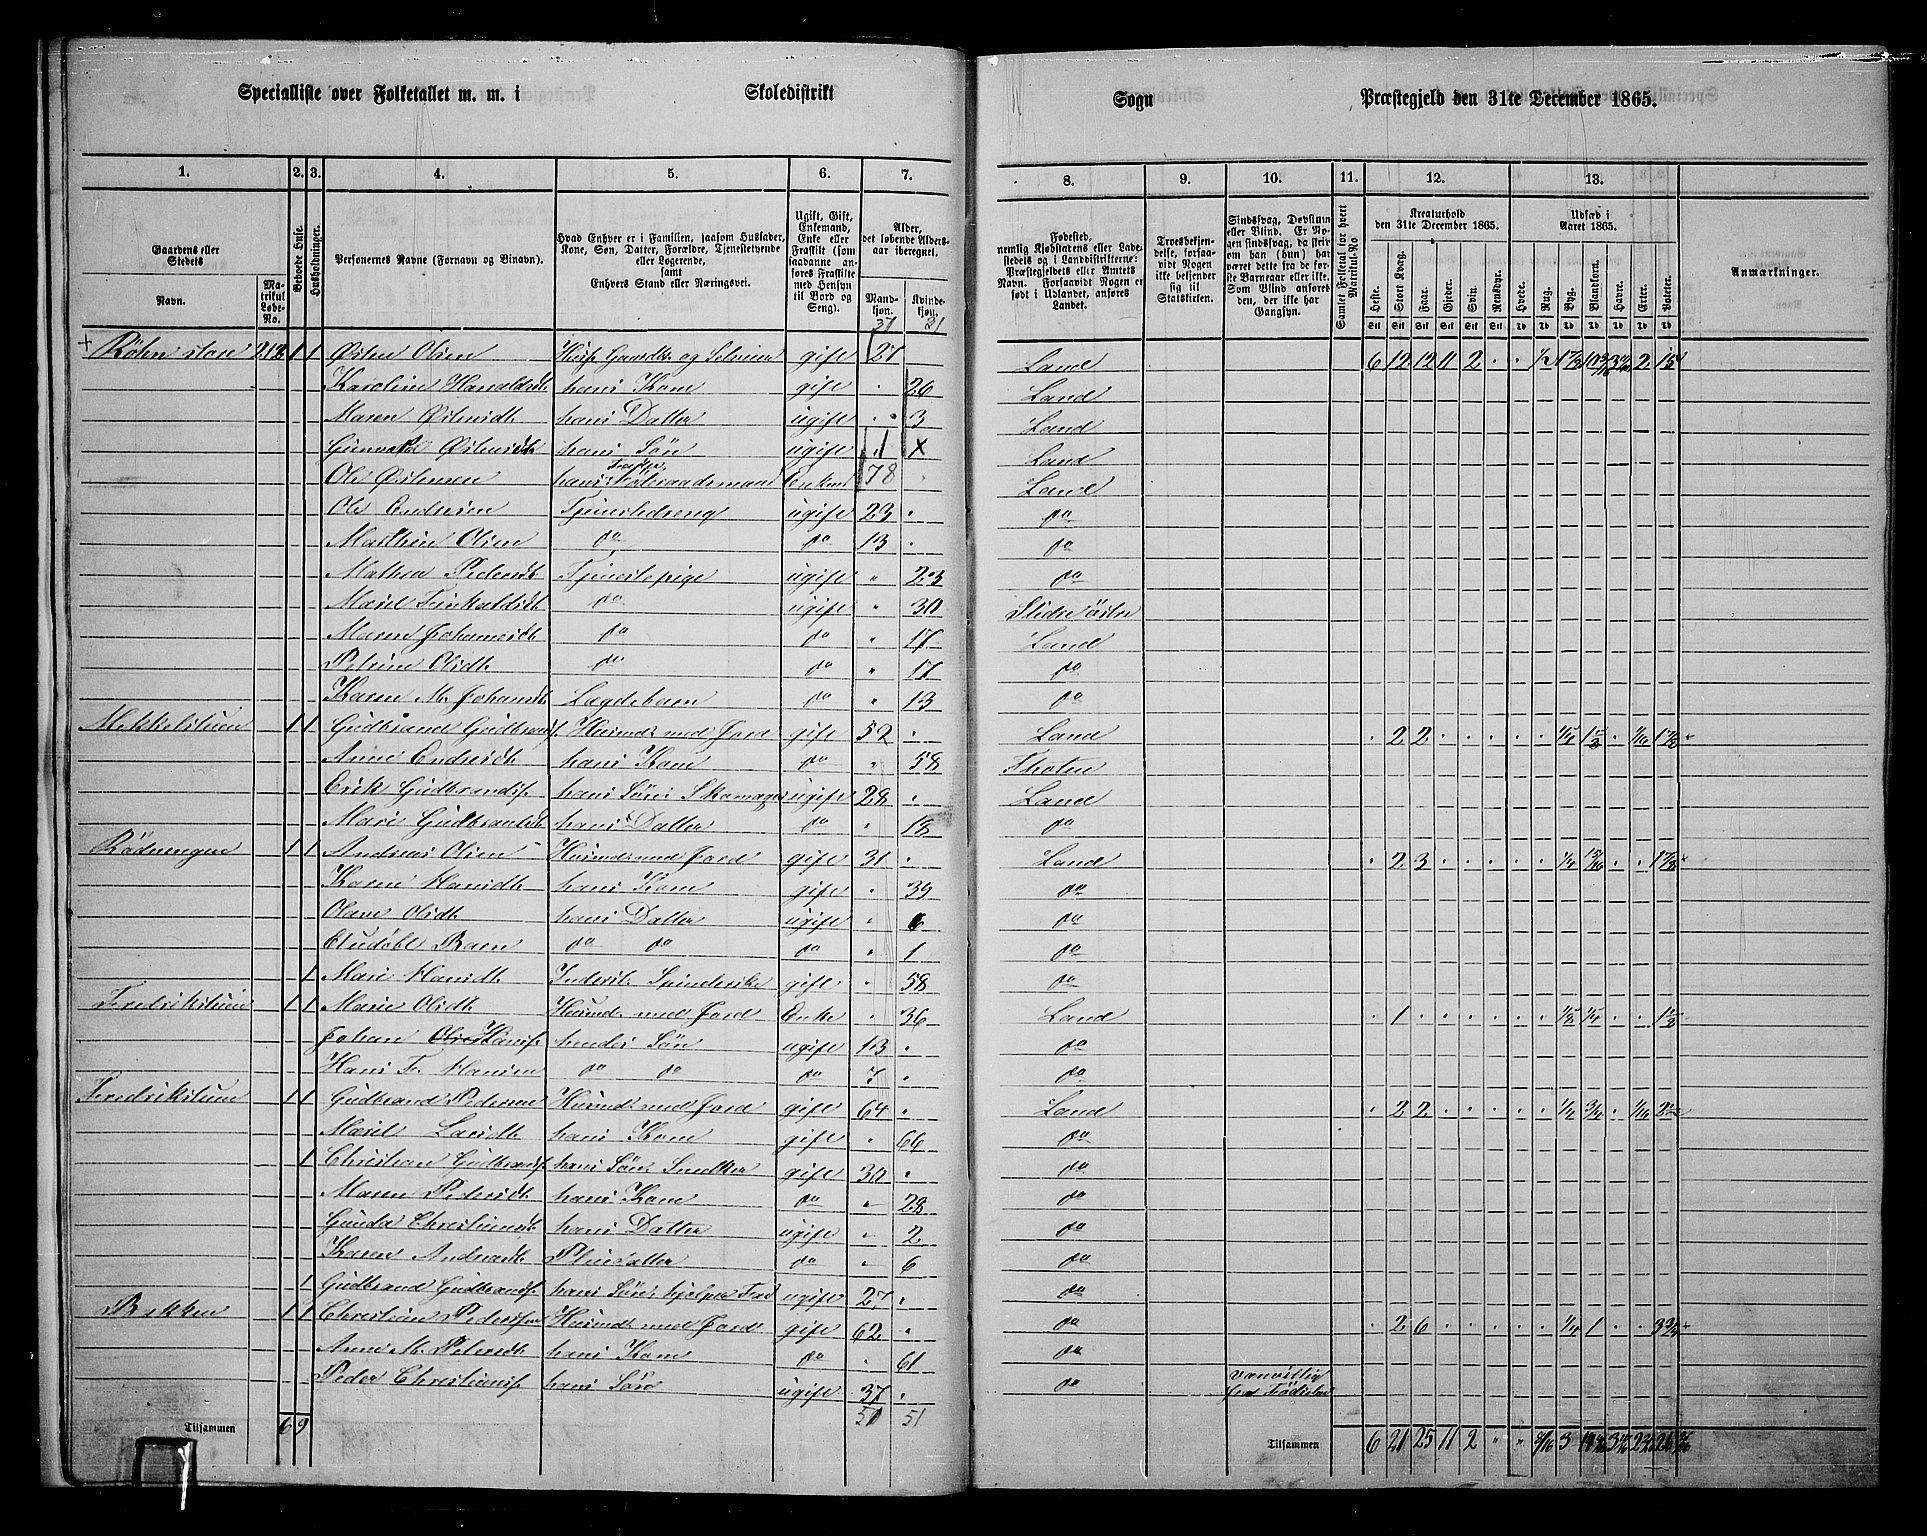 Specialliste over Folketallet m. m. i Skoledistrikt Sogn Præstegjeld den 31te December 1865.
1. 2. 3. 4. 5. 6. 7. 8. 9. 10. 11. 12. 13.
Gaardens eller Stedets
Navn.
Matrikul Løbe-No.
Beboede Huse.
Husholdninger.
Personernes Navne (Fornavn og Binavn).
Hvad Enhver er i Familien, saasom Husfader, Kone, Søn, Datter, Forældre, Tjenestetyende eller Logerende, samt Enhvers Stand eller Næringsvei.
Ugift, Gift, Enkemand, Enke eller Fraskilt (som saadanne anføres Fraskilte med Hensyn til Bord og Seng).
Alder, det løbende Aldersaar iberegnet.
Mandkjøn. Kvindekjøn.
Fødested, nemlig Kjøbstadens eller Ladestedets og i Landdistrikterne: Præstegjeldets eller Amtets Navn. Forsaavidt Nogen er født i Udlandet, anføres Landet.
Troesbekjendelse, forsaavidt Nogen ikke bekjender sig til Statskirken.
Sindssvag, Døvstum eller Blind. Er Nogen sindssvag, da skrives om han (hun) har været dette fra de første Barneaar eller ikke. Som Blind anføres den, der ikke har Gangsyn.
Samlet Folketal for hvert Matrikul-No
Kreaturhold den 31te December 1865.
Heste. Stort Kvæg. Faar. Gjeder. Svin. Rensdyr.
Udsæd i Aaret 1865.
Hvede. Rug. Byg. Blandkorn. Havre. Erter. Poteter.
Anmærkninger.
Røhn store 1 1 Østen Olsen gift 27 Land 6 12 12 11 2
hans Kone gift 26 Land
Maren Østensdt hans Datter ugift 3 Land
hans Søn ugift 1 Land
Ole Østensen hans Fader Føderaadsmand Enkem 78 Land
Ole Endresen Tjenestedreng ugift 23 do
Mathias Olsen do do 13 do
Mathea Pedersdt Tjenestepige ugift 23 do
do ugift 30 Slidre østre
Maren Johannesdt do do 17 Land
Petrine Olsdt do do 17 do
Karen M. Johansdt Lægdebarn do 13 do
Mekkelstuen 1 1 Gudbrand Gudbrands. Huusmd med Jord gift 52 Land 2 2
Anne Endresdt hans Kone do 58 Thoten
Erik Gudbrands. hans Søn Skomager ugift 28 Land
Mari Gudbrandsdt hans Datter do 18 do
Rødningen 1 1 Andreas Olsen Huusmd med Jord gift 31 Land 2 3
Karen Hansdt hans Kone gift 39 do
Olava Olsdt hans Datter ugift 6 do
Eludøbt Barn do do do 1 do
1 Mari Hansdt Inderst Spinderske gift 58 do
Fredrikstuen 1 1 Marie Olsdt Huusmd med Jord Enke 36 Land 1
Johan Hans. hendes Søn ugift 13 do
Hans F. Hansen do do do 7 do
Fredrikstuen 1 1 Gudbrand Pedersen Huusmd med Jord gift 64 Land 2 2
Marit Larsdt hans Kone gift 66 do
1 Christian Gudbrands. hans Søn Snedker gift 30 do
Maren Pedersdt hans Kone do 28 do
Gunda Christiansdt hans Datter ugift 2 do
Karen Andreasdt Pleiedatter do 6 do
1 Gudbrand Gudbrands. hans Søn hjelper Fad ugift 27 do
Bekken 1 1 Christian Pedersen Huusmd med Jord gift 62 do 2 6
Anne M. Petersdt hans Kone do 61 do
Peder Christians. hans Søn ugift 37 do vanvittig fra Fødselen
Tilsammen 6 9 51 Tilsammen 6 21 25 11 2